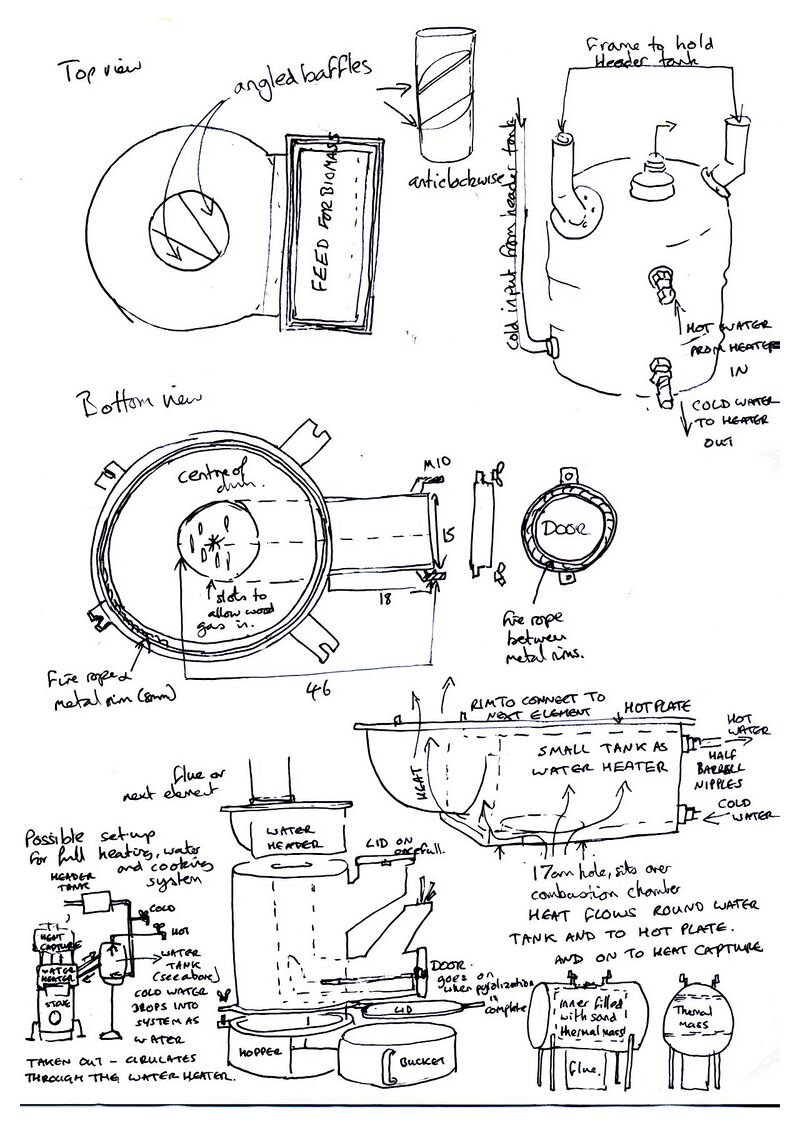 Top view
angled baffles
FEED FOR BIOMASS
anticlockwise
Frame to hold
Header tank
Cold input from header tank
HOT WATER
FROM HEATER
IN
COLD WATER
TO HEATER
OUT
Bottom view
centre of
drum.
slots to
allow wood
gas in.
M10
15
18
46
DOOR
Fire rope
between
metal rims.
Fire rope &
metal rim (8mm)
RIM TO CONNECT TO
NEXT ELEMENT
HOTPLATE
SMALL TANK AS
WATER HEATER
HEAT
HOT
WATER
HALF
BARREL
NIPPLES
COLD
WATER
17cm hole, sits over
combustion chamber
HEAT FLOWS ROUND WATER
TANK AND TO HOT PLATE.
AND ON TO HEAT CAPTURE
flue or
next element
WATER
HEADER
LID ON
DOOR.
goes on
when pyrolization
is
complete
LID
HOPPER
BUCKET
Possible set up
for full heating, water
and cooking
system
HEADER
TANK
COLD
HOT
HEAT
CAPTURE
WATER
HEATER
STOVE
WATER
TANK
(see above)
COLD WATER
DROPS INTO
SYSTEM AS
WATER
TAKEN OUT - CIRULATES
THROUGH THE WATER HEATER.
Inner filled
with sand
thermal mass
flue.
Thermal
mass